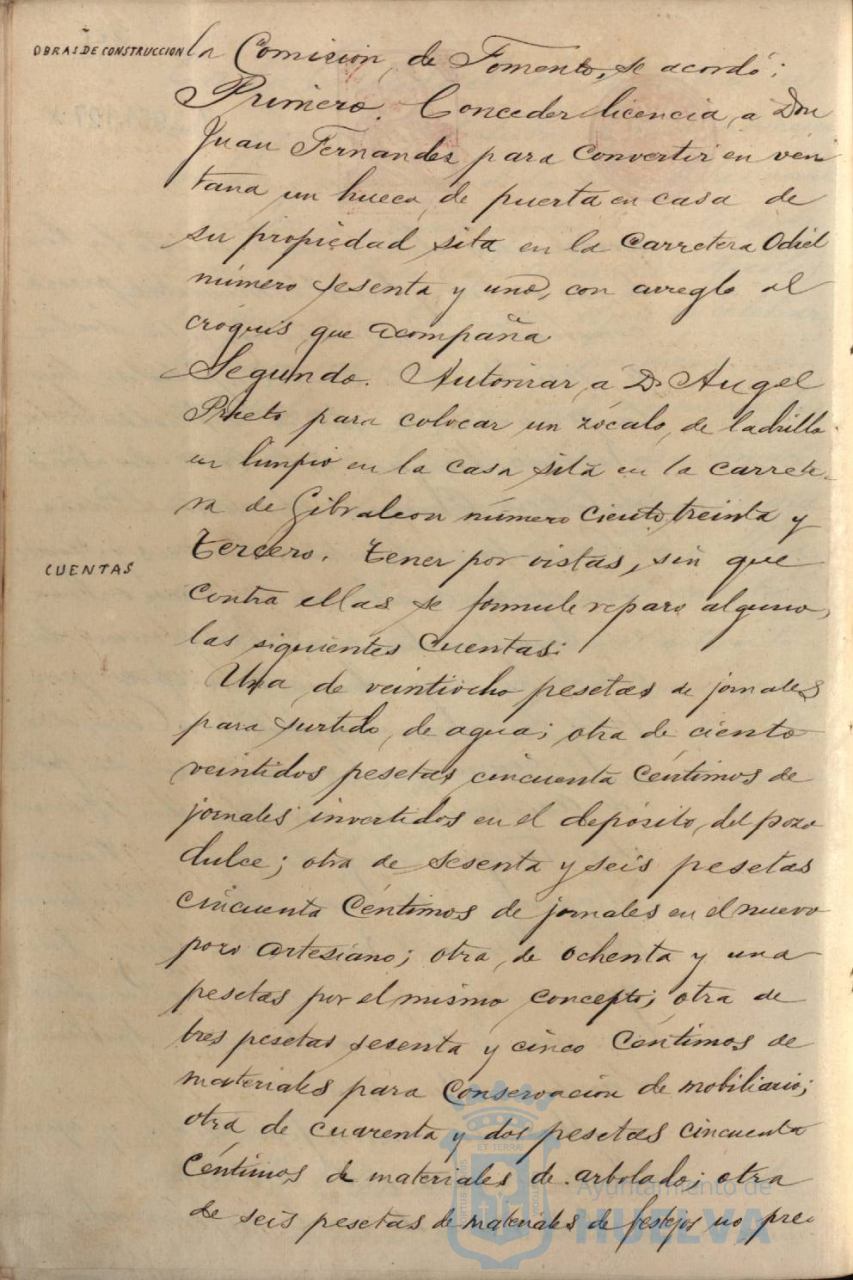 OBRAS DE CONSTRUCCION
la Comision, de Fomento, se acordó:
Primero. Conceder licencia, a Don
Juan Fernandes para convertir en ven
tana un hueco, de puerta en casa de
su propiedad sita en la Carretera Odiel
número sesenta y uno, con arreglo al
cróquis que acompaña
Segundo. Autorizar, a D. Angel
Prieto para colocar un zócalo, de ladrillo
en limpio en la casa sita en la carrete-
ra de Gibraleon número Ciento treinta y
CUENTAS
tercero. tener por vistas, sin que
contra ellas se formule reparo alguno,
las siguientes Cuentas:
Una de veintiocho pesetas de jornales
para surtido, de agua; otra de ciento
veintidos pesetas cincuenta Céntimos de
jornales invertidos en el depósito, del pozo
dulce; otra de sesenta y seis pesetas
cincuenta Céntimos de jornales en el nuevo
pozo artesiano; otra, de ochenta y una
pesetas por el mismo concepto; otra de
tres pesetas sesenta y cinco Céntimos de
materiales para Conservación de mobiliario;
otra de cuarenta y dos pesetas cincuenta
Céntimos de materiales de arbolado; otra
de seis pesetas de materiales de festejos no pre-
ET TERRÆ
Ayuntamiento de
HUELVA